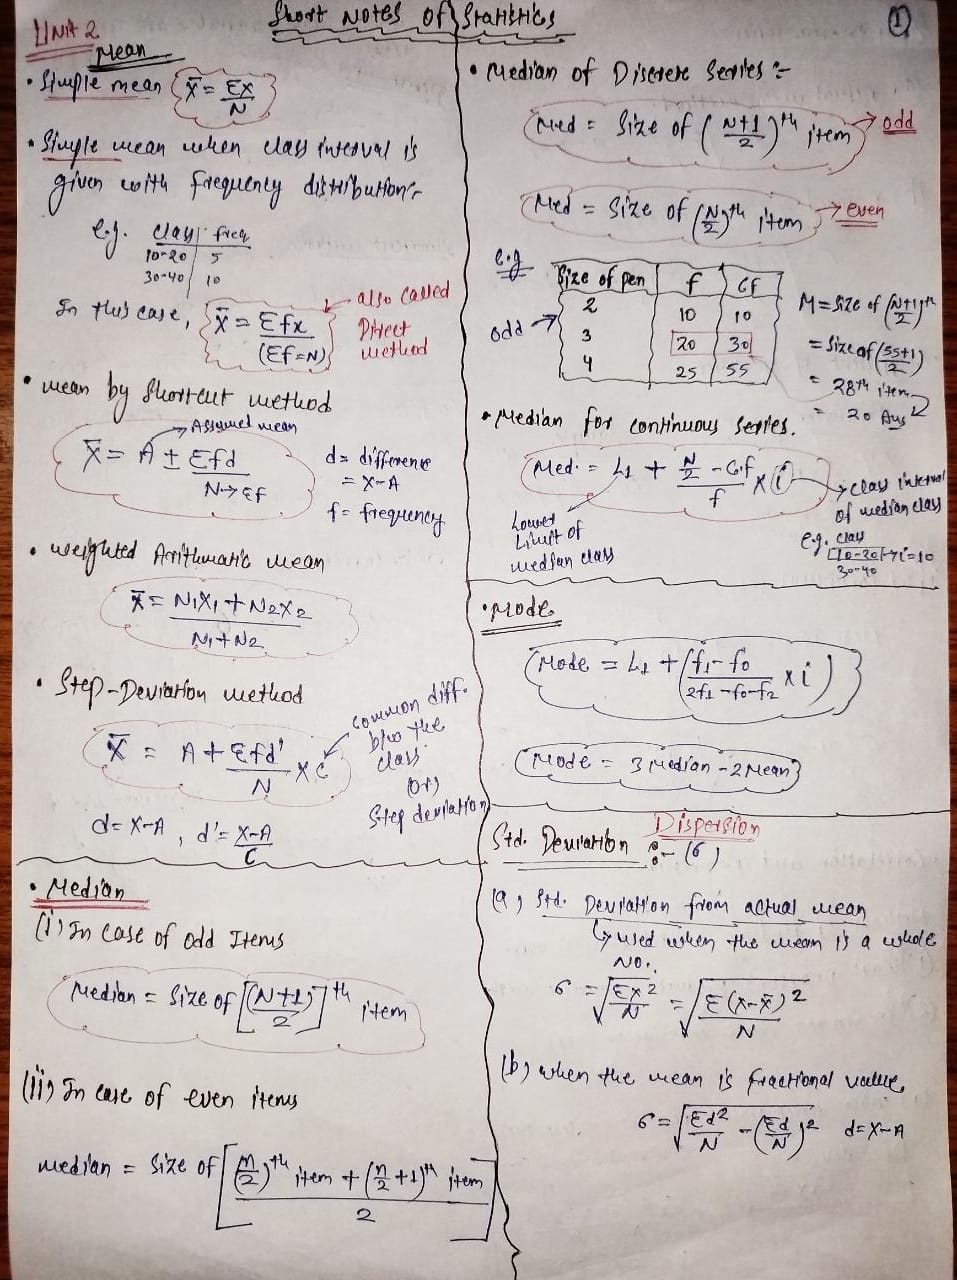 Short Notes of Statistics
①
UNIT 2
Mean
• Simple mean X̄ = Σx/N
• Simple mean when class interval is
given with frequency distribution:-
e.g. class | freq
10-20 | 5
30-40 | 10
In this case, X̄ = Σfx/(Σf=N) → also called Direct method
• mean by Shortcut method
X̄ = A ± Σfd/N → Σf
→ Assumed mean
d = difference
= X-A
f = frequency
• weighted Arithmatic mean
X̄ = N1X1 + N2X2 / N1 + N2
• Step-Deviation method
X̄ = A + Σfd'/N × C
common diff.
b/w the
class
(or)
Step deviation
d = X-A , d' = X-A/C
• Median
(i) In case of odd Items
Median = Size of [(N+1)/2]th item
(ii) In case of even items
median = Size of [(n/2)th item + (n/2 +1)th item / 2]
• Median of Discrete Series :-
Med = Size of (N+1/2)th item → odd
Med = Size of (N/2)th item → even
e.g
Size of pen | f | Cf
2 | 10 | 10
odd → 3 | 20 | 30
4 | 25 | 55
M = Size of (N+1/2)th
= Size of (55+1/2)
= 28th item
= 20 Ans
• Median for continuous series.
Med. = L1 + N/2 - C.f/f × i
Lower
Limit of
median class
→ class interval
of median class
e.g. class
10-20 → i=10
30-40
• Mode
Mode = L1 + (f1-f0/2f1-f0-f2 × i)
Mode = 3 Median - 2 Mean
Dispersion
Std. Deviation :- (6)
(a) Std. Deviation from actual mean
↳ used when the mean is a whole
NO.
6 = √Σx²/N = √Σ(x-x̄)²/N
(b) when the mean is fractional value
6 = √Σd²/N - (Σd/N)² d = X-A